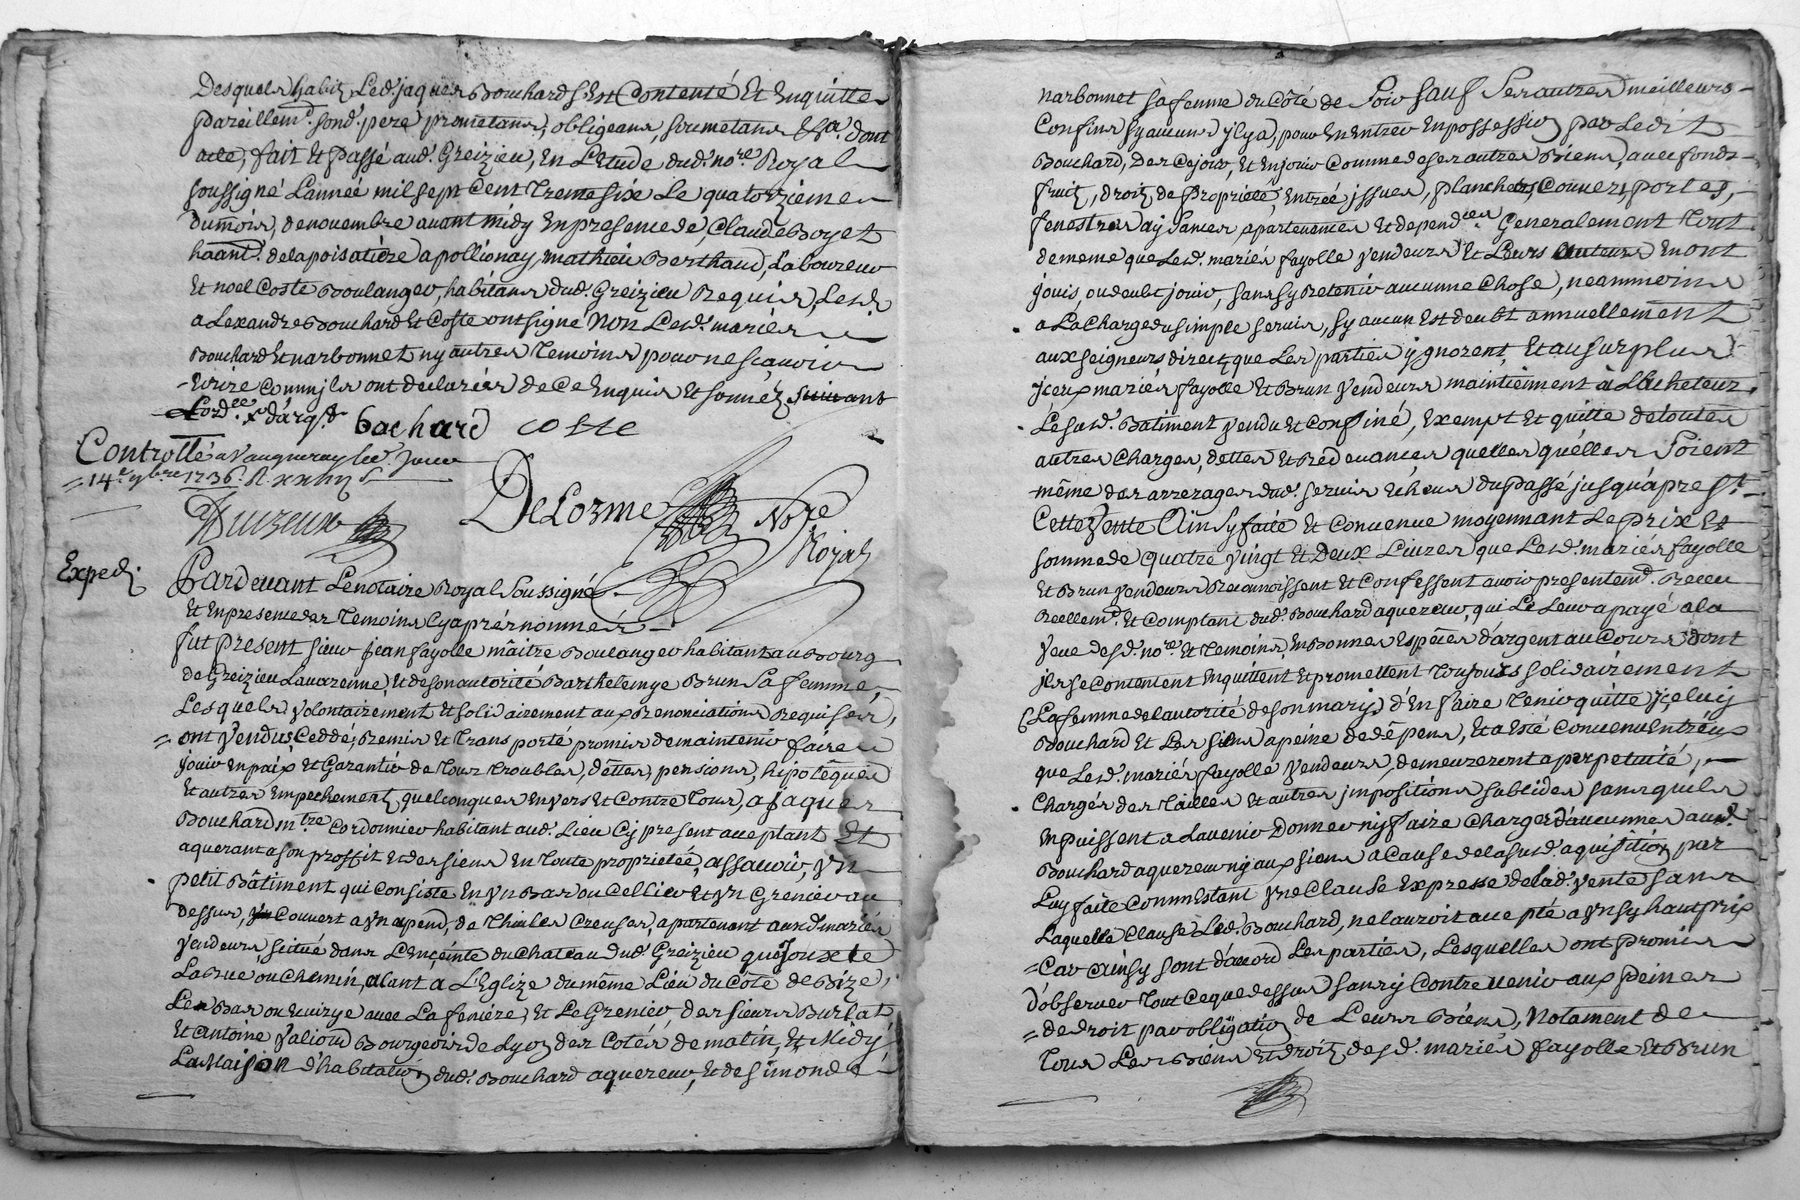 Desquels habitz Led. jaques Bouchard s'Est Contenté Et Enquitte
pareillemt. sond. pere prometans, obligeans, soumetans &a. dont
acte, fait Et Passé aud. Greizieu, En L'Etude dud. nore. Royal
soussigné L'année mil sept Cent Trente six Le quatorzieme
du mois, de novembre avant midy En presence de, Claude Boyet
haant. de la poisatiere a pollionay, mathieu Berthaud, Laboureur
Et noel Coste Boulanger, habitans dud. Greizieu Requis, Lesd.
alexandre Bouchard Et Coste ont signé non Lesd. mariés
Bouchard Et narbonnet ny autres Temoins pour ne sçavoir
Ecrire Comm'jls ont declarés de Ce Enquis Et sonnéz suivant
Lord.ce
bachard coste
Controllé a Vaugneray led. Jour
14e 9bre 1736.
DeLorme Nore
Royal
Exped.
Pardevant Le notaire Royal Soussigné
Et En presence des Temoins Cy aprés nommés
fut present sieur jean fayolle mâitre Boulanger habitant au Bourg
de Greizieu Lavarenne, Et de son autorité Barthelemye Brun Sa femme,
Lesquels volontairement Et solidairement aux Renonciations Requises,
ont vendus, Cedde, Remis Et Transporté promis de maintenir faire
jouir En paix Et Garentir de Tous Troubles, dettes, pensions, hipotêques
Et autres Empechementz quelconques Envers Et Contre Tous, a jaques
Bouchard mtre Cordonnier habitant aud. Lieu Cy present acceptant Et
aquerant a son proffit Et des siens En Toute proprietée, assavoir, Vn
petit Bâtiment qui Consiste En Vn Bas ou Cellier Et Vn Grenier au
dessus, Couvert a Vn apend, de Thuiles Creuses, apartenant auxd. mariés
Vendeurs, scitué dans L'Enceinte du Chateau dud. Greizieu qui Jouxte
La Rue ou Chemin, alant a L'Eglize du même Lieu du Côté de Bize,
Le Bas ou Ecuirye avec La feniere, Et Le Grenier, des sieurs Burlat
Et Antoine Valioud Bourgeois de Lyon des Cotés de matin, Et Midy,
La Maison d'habitation dud. Bouchard aquereur, Et de simonde
narbonnet sa femme du Côté de Soir sauf Ses autres meilleurs
Confins sy aucuns jl y a, pour En Entrer En possession par Ledit
Bouchard, dez Ce jour, Et En jouir Comme de ses autres Biens, avec fonds
fruitz, droitz de Proprieté, Entrée, issues, planchers, Couvers, portes,
fenestres aysances, apartenances Et dependces. Generalement Tout
de meme que Lesd. mariés fayolle vendeurs Et Leurs auteurs En ont
jouis, ou deubt jouir, sans sy Retenir aucune Chose, neanmoins
a La Charge du simple servis, sy aucun Est deubt annuellement
aux seigneurs directz que Les parties ygnorent, Et au surplus
jceux mariés fayolle Et Brun Vendeurs maintiennent à L'acheteur
Le susd. Batiment vendu Et Confiné, Exempt Et quitte de toutes
autres Charges, dettes Et Redevances quelles quélles Soient
même des arrerages dud. servis Echeus du passé jusqu'a prest.
Cette Vente Ainsy faite Et Convenue moyennant Le prix Et
somme de quatre Vingt Et Deux Livres que Lesd. mariés fayolle
Et Brun Vendeurs Reconnoissent Et Confessent avoir presentemt. Receu
Reellemt. Et Comptant dud. Bouchard aquereur, qui Le Leur a payé a la
Veue desd. nore. Et Temoins, En Bonnes Espêces d'argent au Cours dont
jls se Contentent Enquittent Et promettent Toujours solidairement
(La femme de l'autorité de son mary) d'En faire Tenir quitte yceluy
Bouchard Et Les siens a peine de dêpens, Et a Esté Convenu Entréux
que Lesd. mariés fayolle Vendeurs, demeureront a perpetuité,
Chargés des Tailles Et autres jmpositions subsides sans quils
En puissent a L'avenir Donner ny faire Charger d'aucunes aud.
Bouchard aquereur ny aux siens a Cause de la susd. aquisition par
Luy faite Comm'Estant Vne Clause Expresse de lad. Vente sans
Laquelle Clause Led. Bouchard, ne l'auroit accepté a Vn sy haut prix
Car Ainsy sont d'acord Les parties, Lesquelles ont promis
d'observer Tout Ce que dessus sans y Contrevenir aux Peines
de droit par obligation de Leurs Biens, Notament de
Tous Les Biens Et droitz desd. mariés fayolle Et Brun